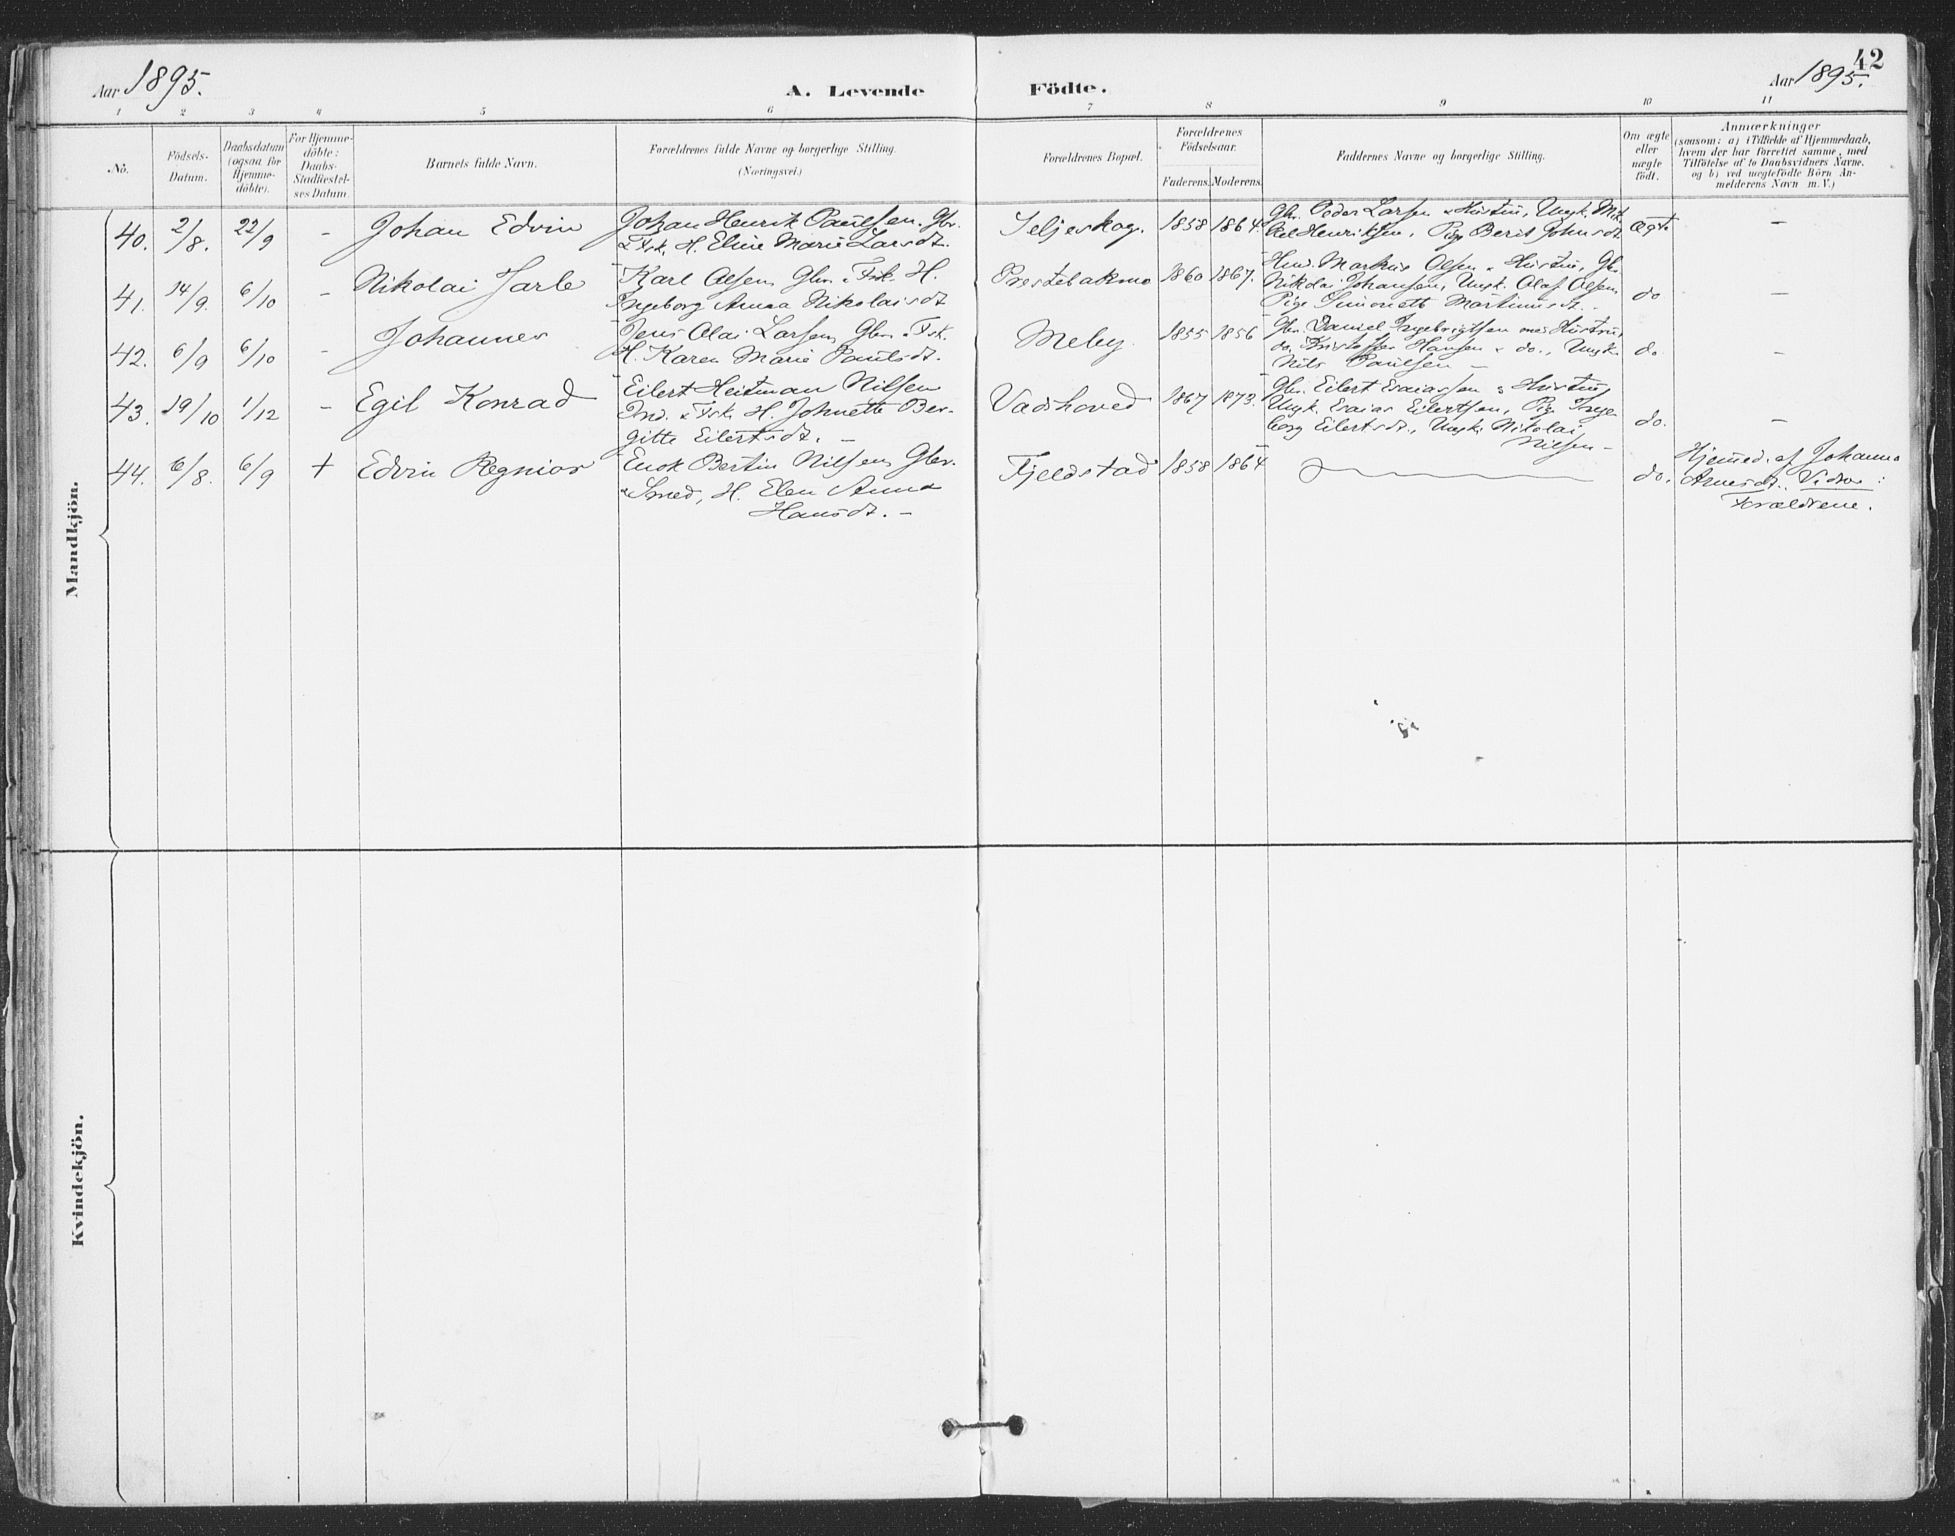 42
Aar 1895.
A. Levende Födte.
Aar 1895.
1 2 3 4 5 6 7 8 9 10 11
No.
Födsels-Datum.
Daabsdatum (ogsaa for Hjemme-döbte).
For Hjemme-döbte: Daabs-Stadfæstel-ses Datum.
Barnets fulde Navn.
Forældrenes fulde Navne og borgerlige Stilling.
(Næringsvei.)
Forældrenes Bopæl.
Forældrenes Födselsaar.
Faderens. Moderens.
Faddernes Navne og borgerlige Stilling.
Om ægte eller uægte födt.
Anmærkninger
(saasom: a) i Tilfælde af Hjemmedaab,
hvem der har forrettet samme, med
Tilföielse af to Daabsvidners Navne.
og b) ved uægtefödte Börn An-
melderens Navn m. V.)
Mandkjön.
40. 2/8. 22/9 - Johan Edvin
Johan Henrik Paulsen. Gbr.
& Fsk. H. Eline Marie Larsdt.
Seljeskog. 1858 1864.
Gbr. Peder Larsen & Hustru, Ungk. Mik-
kel Henriksen, Pige Berit Johnsdt.
Ægte -
41. 14/9. 6/10 - Nikolai Jarle
Karl Olsen, Gbr. & Fsk. H.
Ingeborg Anna Nikolaisdt.
Prestebakmo 1860 1867.
Hmd. Markus Olsen & Hustru, Gbr.
Nikolai Johansen, Ungk. Olaf Olsen,
Pige Simonette Martinusdt.
do -
42. 6/9 6/10 - Johannes
Jens Olai Larsen, Gbr. & Fsk.
H. Karen Marie Paulsdt.
Meby. 1855 1856
Gbr. Daniel Ingebrigtsen med Hustru,
do. Kristoffer Hansen & do., Ungk.
Nils Paulsen -
do -
43. 19/10 1/12 - Egil Konrad
Eilert Heitman Nilsen
Ind. & Fsk. H. Johnette Ber-
gitte Eilertsdt. -
Vadshoved 1867 1873.
Gbr. Eilert Esaiassen & Hustru,
Ungk. Esaias Eilertsen, Pige Inge-
borg Eilertsdt., Ungk. Nikolai
Nilsen -
do. -
44. 6/8. 6/9 + Edvin Regnior
Enok Bertin Nilsen, Gbr.
& Smed, H. Elen Anna
Hansdt. -
Fjeldstad 1858 1864
do.
Hjemmed. af Johanna
Arnesdt. Vidner:
Forældrene.
Kvindekjön.